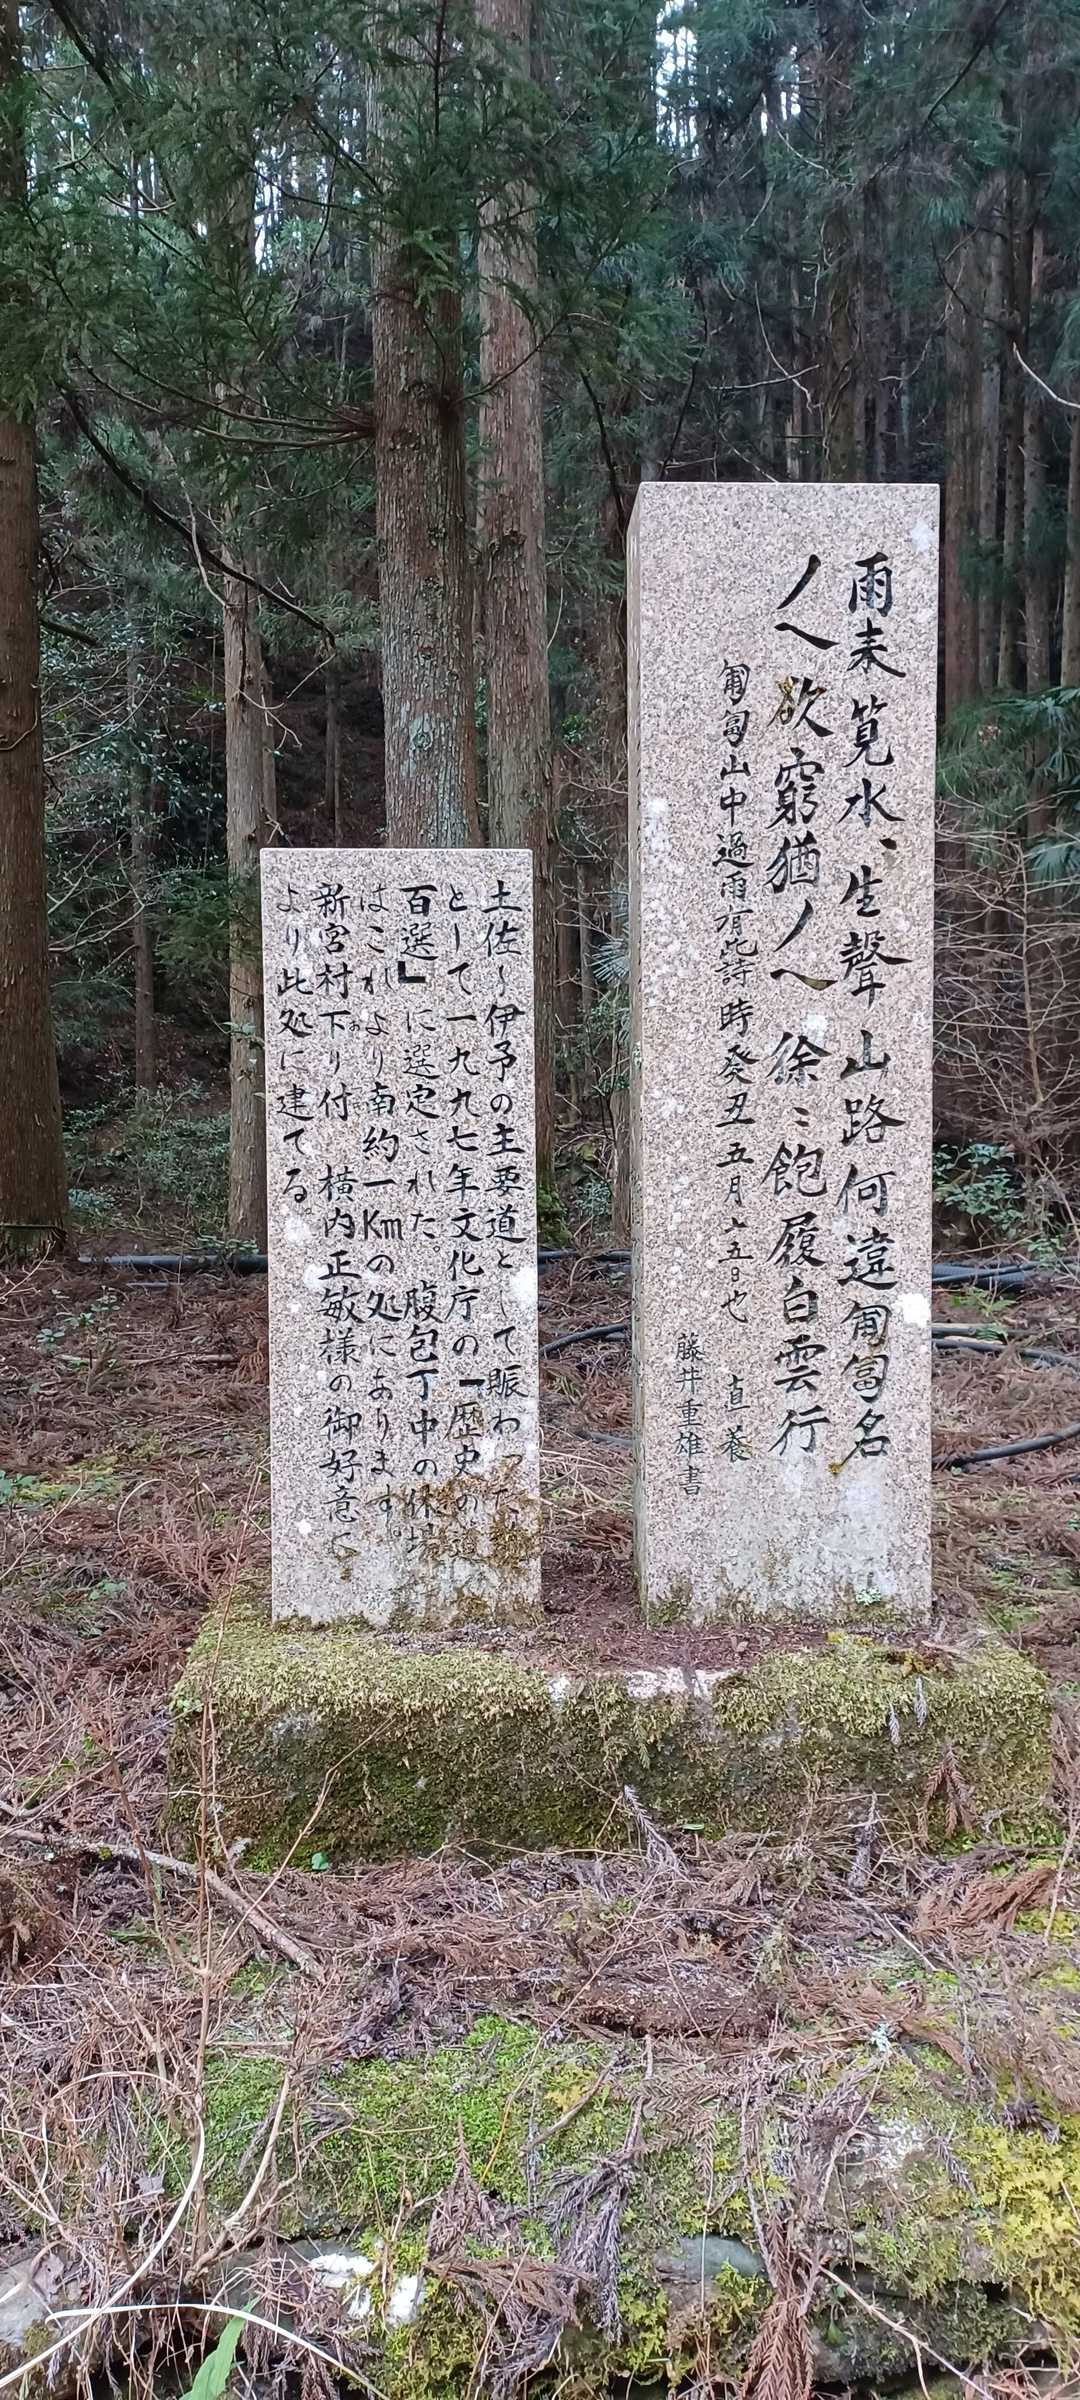 雨来筧水、生聲山路何違匍匐名
人欲窮猶人徐〻飽履白雲行
匍匐山中過雨有此詩時癸丑五月六五日也 直養
藤井重雄書
土佐〜伊予の主要道として賑わった
として一九九七年文化庁の「歴史の道
百選」に選定された。腹包丁中の休場
はこれより南約一Kmの処にあります。
新宮村下り付 横内正敏様の御好意に
より此処に建てる。